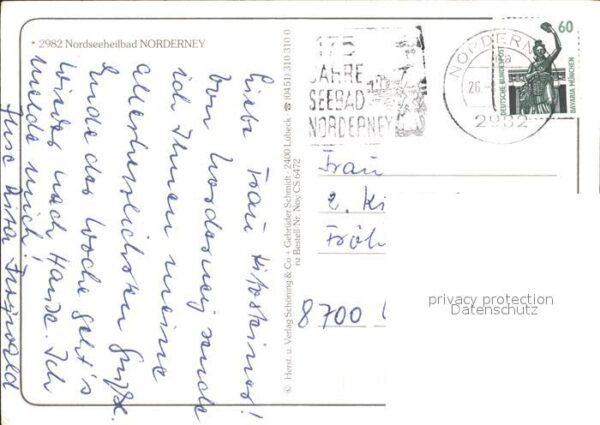 • 2982 Nordseeheilbad NORDERNEY
Liebe Frau
Von Norderney sende
ich Ihnen meine
allerherzlichsten Grüße.
Ende der Woche geht's
wieder nach Hause. Ich
melde mich!
Ihre
© Herst. u. Verlag Schöning & Co + Gebrüder Schmidt · 2400 Lübeck ☎ (0451) 310 310 0
nz Bestell-Nr. Ney CS 6472
175
JAHRE
SEEBAD
NORDERNEY
NORDERN
26.
2982
60
DEUTSCHE BUNDESPOST
BAVARIA MÜNCHEN
Frau
8700
privacy protection
Datenschutz